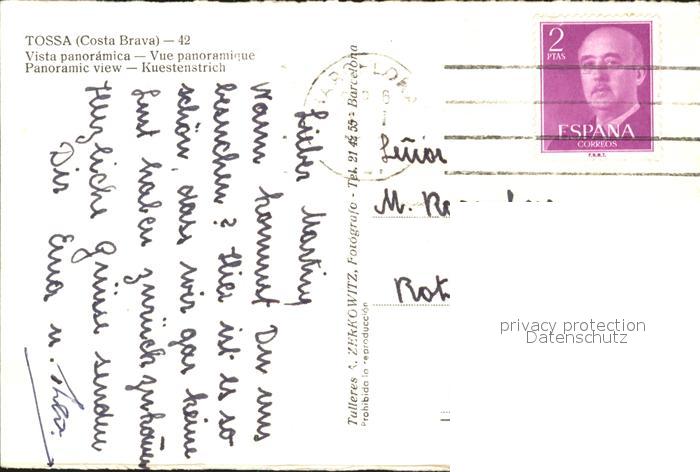 TOSSA (Costa Brava) — 42
Vista panorámica — Vue panoramique
Panoramic view — Kuestenstrich
Lieber Martin,
Wann kommst Du uns
besuchen? Hier ist es so
schön, dass wir gar keine
Lust haben zurückzukommen
Herzliche Grüsse senden
Dir Erna u.
Talleres A. ZERKOWITZ, Fotógrafo - Tel. 21 42 55 - Barcelona
Prohibida la reproducción
BARCELONA
2
PTAS
ESPAÑA
CORREOS
F.N.M.T.
Señor
M.
Rot
privacy protection
Datenschutz